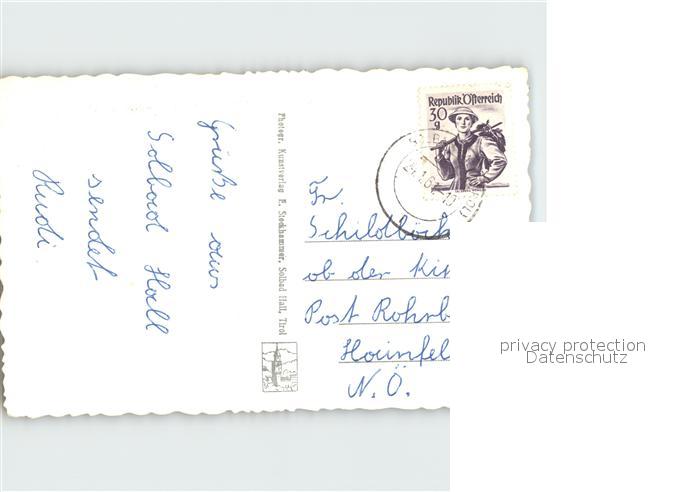 Grüße aus
Solbad Hall
sendet
Rudi.
Photogr. Kunstverlag R. Stockhammer, Solbad Hall, Tirol
Republik Österreich
30
g
Fr.
Schildböck
ob der Kir
Post Rohrb
Hainfel
N. Ö.
privacy protection
Datenschutz